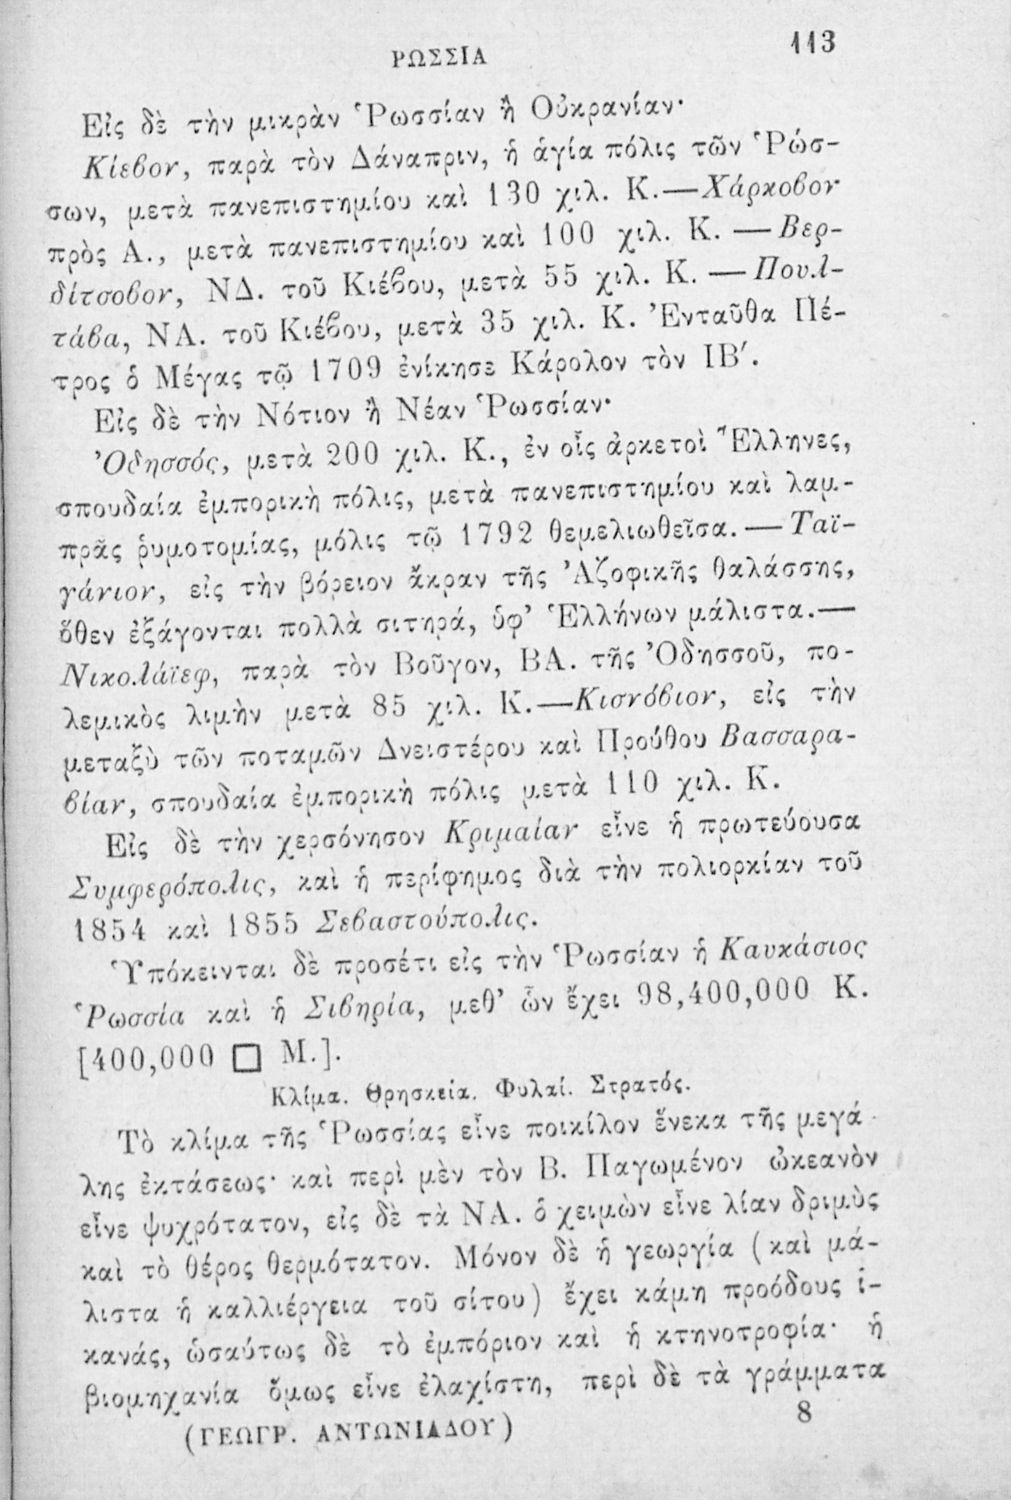 ΡΩΣΣΙΑ 113
Εἰς δὲ τὴν μικρὰν Ῥωσσίαν ἢ Οὐκρανίαν·
Κίεβον, παρὰ τὸν Δάναπριν, ἡ ἁγία πόλις τῶν Ῥώσ-
σων, μετὰ πανεπιστημίου καὶ 130 χιλ. Κ.—Χάρκοβον
πρὸς Α., μετὰ πανεπιστημίου καὶ 100 χιλ. Κ. — Βερ-
δίτσοβον, ΝΔ. τοῦ Κιέβου, μετὰ 55 χιλ. Κ. — Πουλ-
τάβα, ΝΑ. τοῦ Κιέβου, μετὰ 35 χιλ. Κ. Ἐνταῦθα Πέ-
τρος ὁ Μέγας τῷ 1709 ἐνίκησε Κάρολον τὸν ΙΒ′.
Εἰς δὲ τὴν Νότιον ἢ Νέαν Ῥωσσίαν·
Ὀδησσός, μετὰ 200 χιλ. Κ., ἐν οἷς ἀρκετοὶ Ἕλληνες,
σπουδαία ἐμπορικὴ πόλις, μετὰ πανεπιστημίου καὶ λαμ-
πρᾶς ῥυμοτομίας, μόλις τῷ 1792 θεμελιωθεῖσα. — Ταϊ-
γάνιον, εἰς τὴν βόρειον ἄκραν τῆς Ἀζοφικῆς θαλάσσης,
ὅθεν ἐξάγονται πολλὰ σιτηρά, ὑφ’ Ἑλλήνων μάλιστα.—
Νικολάϊεφ, παρὰ τὸν Βοῦγον, ΒΑ. τῆς Ὀδησσοῦ, πο-
λεμικὸς λιμὴν μετὰ 85 χιλ. Κ.—Κισνόβιον, εἰς τὴν
μεταξὺ τῶν ποταμῶν Δνειστέρου καὶ Προύθου Βασσαρα-
βίαν, σπουδαία ἐμπορικὴ πόλις μετὰ 110 χιλ. Κ.
Εἰς δὲ τὴν χερσόνησον Κριμαίαν εἶνε ἡ πρωτεύουσα
Συμφερόπολις, καὶ ἡ περίφημος διὰ τὴν πολιορκίαν τοῦ
1854 καὶ 1855 Σεβαστούπολις.
Ὑπόκεινται δὲ προσέτι εἰς τὴν Ῥωσσίαν ἡ Καυκάσιος
Ῥωσσία καὶ ἡ Σιβηρία, μεθ’ ὧν ἔχει 98,400,000 Κ.
[400,000 □ Μ.].
Κλίμα. Θρησκεία. Φυλαί. Στρατός.
Τὸ κλίμα τῆς Ῥωσσίας εἶνε ποικίλον ἕνεκα τῆς μεγά-
λης ἐκτάσεως· καὶ περὶ μὲν τὸν Β. Παγωμένον ὠκεανὸν
εἶνε ψυχρότατον, εἰς δὲ τὰ ΝΑ. ὁ χειμὼν εἶνε λίαν δριμὺς
καὶ τὸ θέρος θερμότατον. Μόνον δὲ ἡ γεωργία (καὶ μά-
λιστα ἡ καλλιέργεια τοῦ σίτου) ἔχει κάμῃ προόδους ἱ-
κανάς, ὡσαύτως δὲ τὸ ἐμπόριον καὶ ἡ κτηνοτροφία· ἡ
βιομηχανία ὅμως εἶνε ἐλαχίστη, περὶ δὲ τὰ γράμματα
(ΓΕΩΓΡ. ΑΝΤΩΝΙΑΔΟΥ) 8